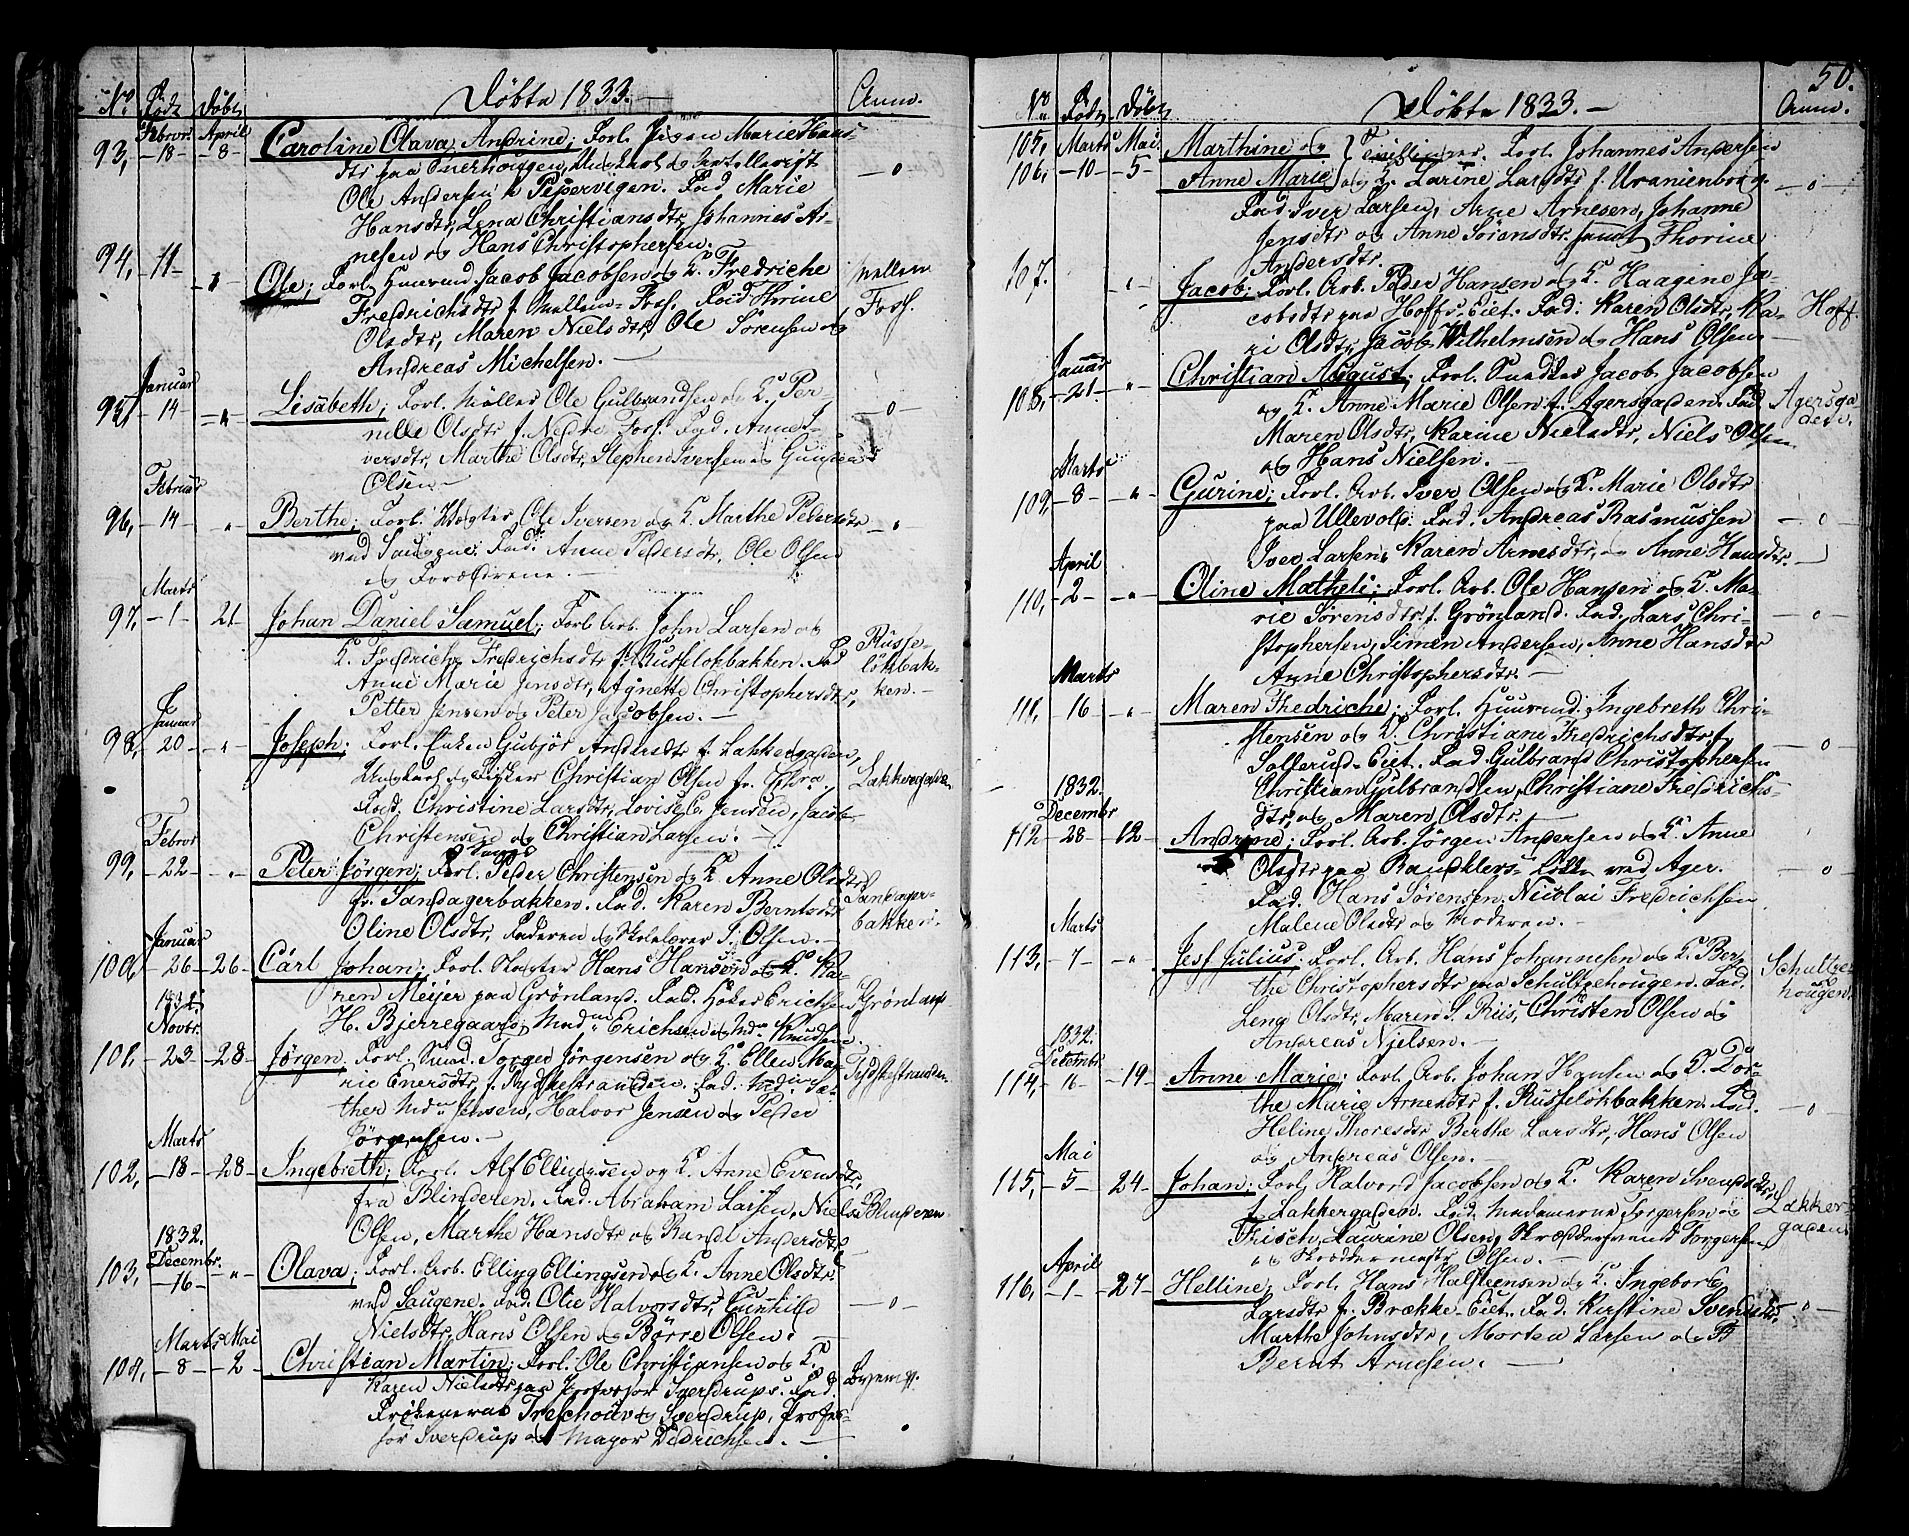 No Födt Döbt Döbte 1833. Anm.
Febrvr April
93, 18 8 Caroline Olava Andrine; Forl. Pigen Marie Hans-
dtr paa Enerhougen, Ungkarl
Ole Andersen i Pepervigen. Fad. Marie
Hansdtr, Lena Christiansdtr, Johannes Ar-
nesen og Hans Christophersen.
94, 11 Ole; Forl. Huusmd. Jacob Jacobsen og K. Fredriche
Fredrichsdtr f. Mellem-Foss. Fad. Thrine
Olsdtr, Maren Nielsdtr, Ole Sörensen og
Andreas Michelsen.
Mellem
Foss.
Januar
95, 14 Lisabeth; Forl. Möller Ole Gulbrandsen og K. Per-
nille Olsdtr f. Nedre Foss. Fad. Anne I-
versdtr, Marthe Olsdtr, Stephen Iversen og
Olsen
Februar
96, 14 Berthe; Forl. Vægter Ole Iversen og K. Marthe Pedersdtr
ved Saugene. Fad: Anne Pedersdtr, Ole Olsen
og Forældrene.
Marts
97, 1 21 Johan Daniel Samuel; Forl. Arb. John Larsen og
K. Fredriche Fredrichsdtr f. Russelökbakken. Fad
Anne Marie Jensdtr, Agnette Christophersdtr,
Petter Jensen og Peter Jacobsen.
Russe-
lökbak-
ken.
Januar
98, 20 Joseph; Forl. Enken Gubjör Andersdtr f. Lakkegaden,
Ungkarl og Fisker Christian Olsen
Fad. Christine Larsdtr, Lovise C. Jensen, Jacob
Christensen og Christian Larsen.
Lakkegaden
Febrvr
99, 22 Peter Jörgen; Forl. Peder Christensen og K. Anne Olsdtr
fr. Sandagerbakken. Fad. Karen Berntsdtr
Oline Olsdtr, Faderen og Skolelærer J. Olsen.
Sandager-
bakken.
Januar
100, 26 26 Carl Johan; Forl. Slagter Hans Hansen og K. Ka-
ren Meijer paa Grönland. Fad. Höker Erichsen
H. Bjerregaard, Mad. Erichsen og Md. Knudsen.
Grönland
1832.
Novbr.
101, 23 28 Jörgen; Forl. Smd. Torger Jörgensen og K. Ellen Ma-
rie Enersdtr, f. Tydskestranden. Fad. Md. Sæ-
ther Md. Jensen, Halvor Jensen og Peder
Jörgensen.
Tydskestranden
Marts
102, 18 28 Ingebreth; Forl. Alf Ellingsen og K. Anne Evensdtr,
fra Blinderen. Fad. Abraham Larsen, Niels
Olsen, Marthe Hansdtr og Randi Andersdtr
Blinderen
1832.
Decembr.
103, 16 Olava; Forl. Arb. Elling Ellingsen og K. Anne Olsdtr
ved Saugene. Fad. Olie Halvorsdtr, Gunhild
Nielsdtr, Hans Olsen og Börre Olsen.
Marts Mai
104, 8 2 Christian Martin; Forl. Ole Christiansen og K.
Karen Nielsdtr paa Professor Sverdrups. Fad.
Frökenerne Treschouv og Sverdrup, Profes-
sor Sverdrup og Major Didrichsen.
50.
No Födt Döbt Döbte 1833. Anm.
105, Marts Mai Marthine og Tvillinger. Forl. Johannes Andersen
106, 10 5 Anne Marie og K. Larine Larsdtr f. Uranienborg.
Fad Iver Larsen, Arne Arnesen, Johanne
Jensdtr og Anne Sörensdtr. samt Thorine
Andersdtr.
107. Jacob; Forl. Arb. Peder Hansen og K. Haagine Ja-
cobsdtr paa Hoffs-Eiet. Fad: Karen Olsdtr, Ka-
ri Olsdtr, Jacob Wilhelmsen og Hans Olsen
Hoff.
Januar
108, 21 Christian August; Forl. Snedker Jacob Jacobsen
og K. Anne Marie Olsen f. Agersgaden. Fad
Maren Olsdtr, Karine Nielsdtr, Niels Olsen
og Hans Nielsen.
Agersga
den.
Marts
109, 8 Gurine; Forl. Arb. Iver Olsen og K. Marie Olsdtr
paa Ullevold. Fad. Andreas Rasmussen
Iver Larsen, Karen Arnesdtr, og Anne Hansdtr.
April
110, 2 Oline Mathea; Forl. Arb. Ole Hansen og K. Ma-
rie Sörensdtr f. Grönland. Fad. Lars Chri-
stophersen, Simen Andersen, Anne Hansdtr
Anne Christophersdtr.
Marts
111, 16 Maren Fredriche; Forl. Huusmd. Ingebreth Chri-
stensen og K. Christiane Fredrichsdtr f.
Eiet. Fad. Gulbrand Christophersen
Christian Gulbrandsen, Christiane Fredrichs-
dtr, og Maren Olsdtr.
1832.
Decembr
112 28 12 Andrine; Forl. Arb. Jörgen Andersen og K. Anne
Olsdtr paa Lökke ved Ager.
Fad. Hans Sörensen, Nicolai Fredrichsen
Malene Olsdtr og Moderen.
Marts
113, 7 Jess Julius. Forl. Arb. Hans Johannesen og K. Ber-
the Christophersdtr paa Schultzehougen. Fad.
Lena Olsdtr, Maren S. Riis, Christen Olsen og
Andreas Nielsen.
Schultze-
hougen.
1832.
Decembr
114, 16 19 Anne Marie; Forl. Arb. Johan Hansen og K. Dor-
the Marie Arnesdtr f. Russelökbakken. Fad.
Heline Thoresdtr Berthe Larsdtr, Hans Olsen
og Andreas Olsen.
Mai
115, 5 24 Johan; Forl. Halvord Jacobsen og K. Karen Svensdtr,
f. Lakkergaden. Fad. Madamerne Torgersen og
Frisch, Laurine Olsen, Skræddersvend Torgersen
og Skræddermester Olsen.
Lakker-
gaden
April
116, 1 27 Helline, Forl. Hans Halstensen og K. Ingeborg
Larsdtr fr. Brække-Eiet. Fad. Kirstine Svendsdtr,
Marthe Johnsdtr, Morten Larsen og
Bernt Arnesen.